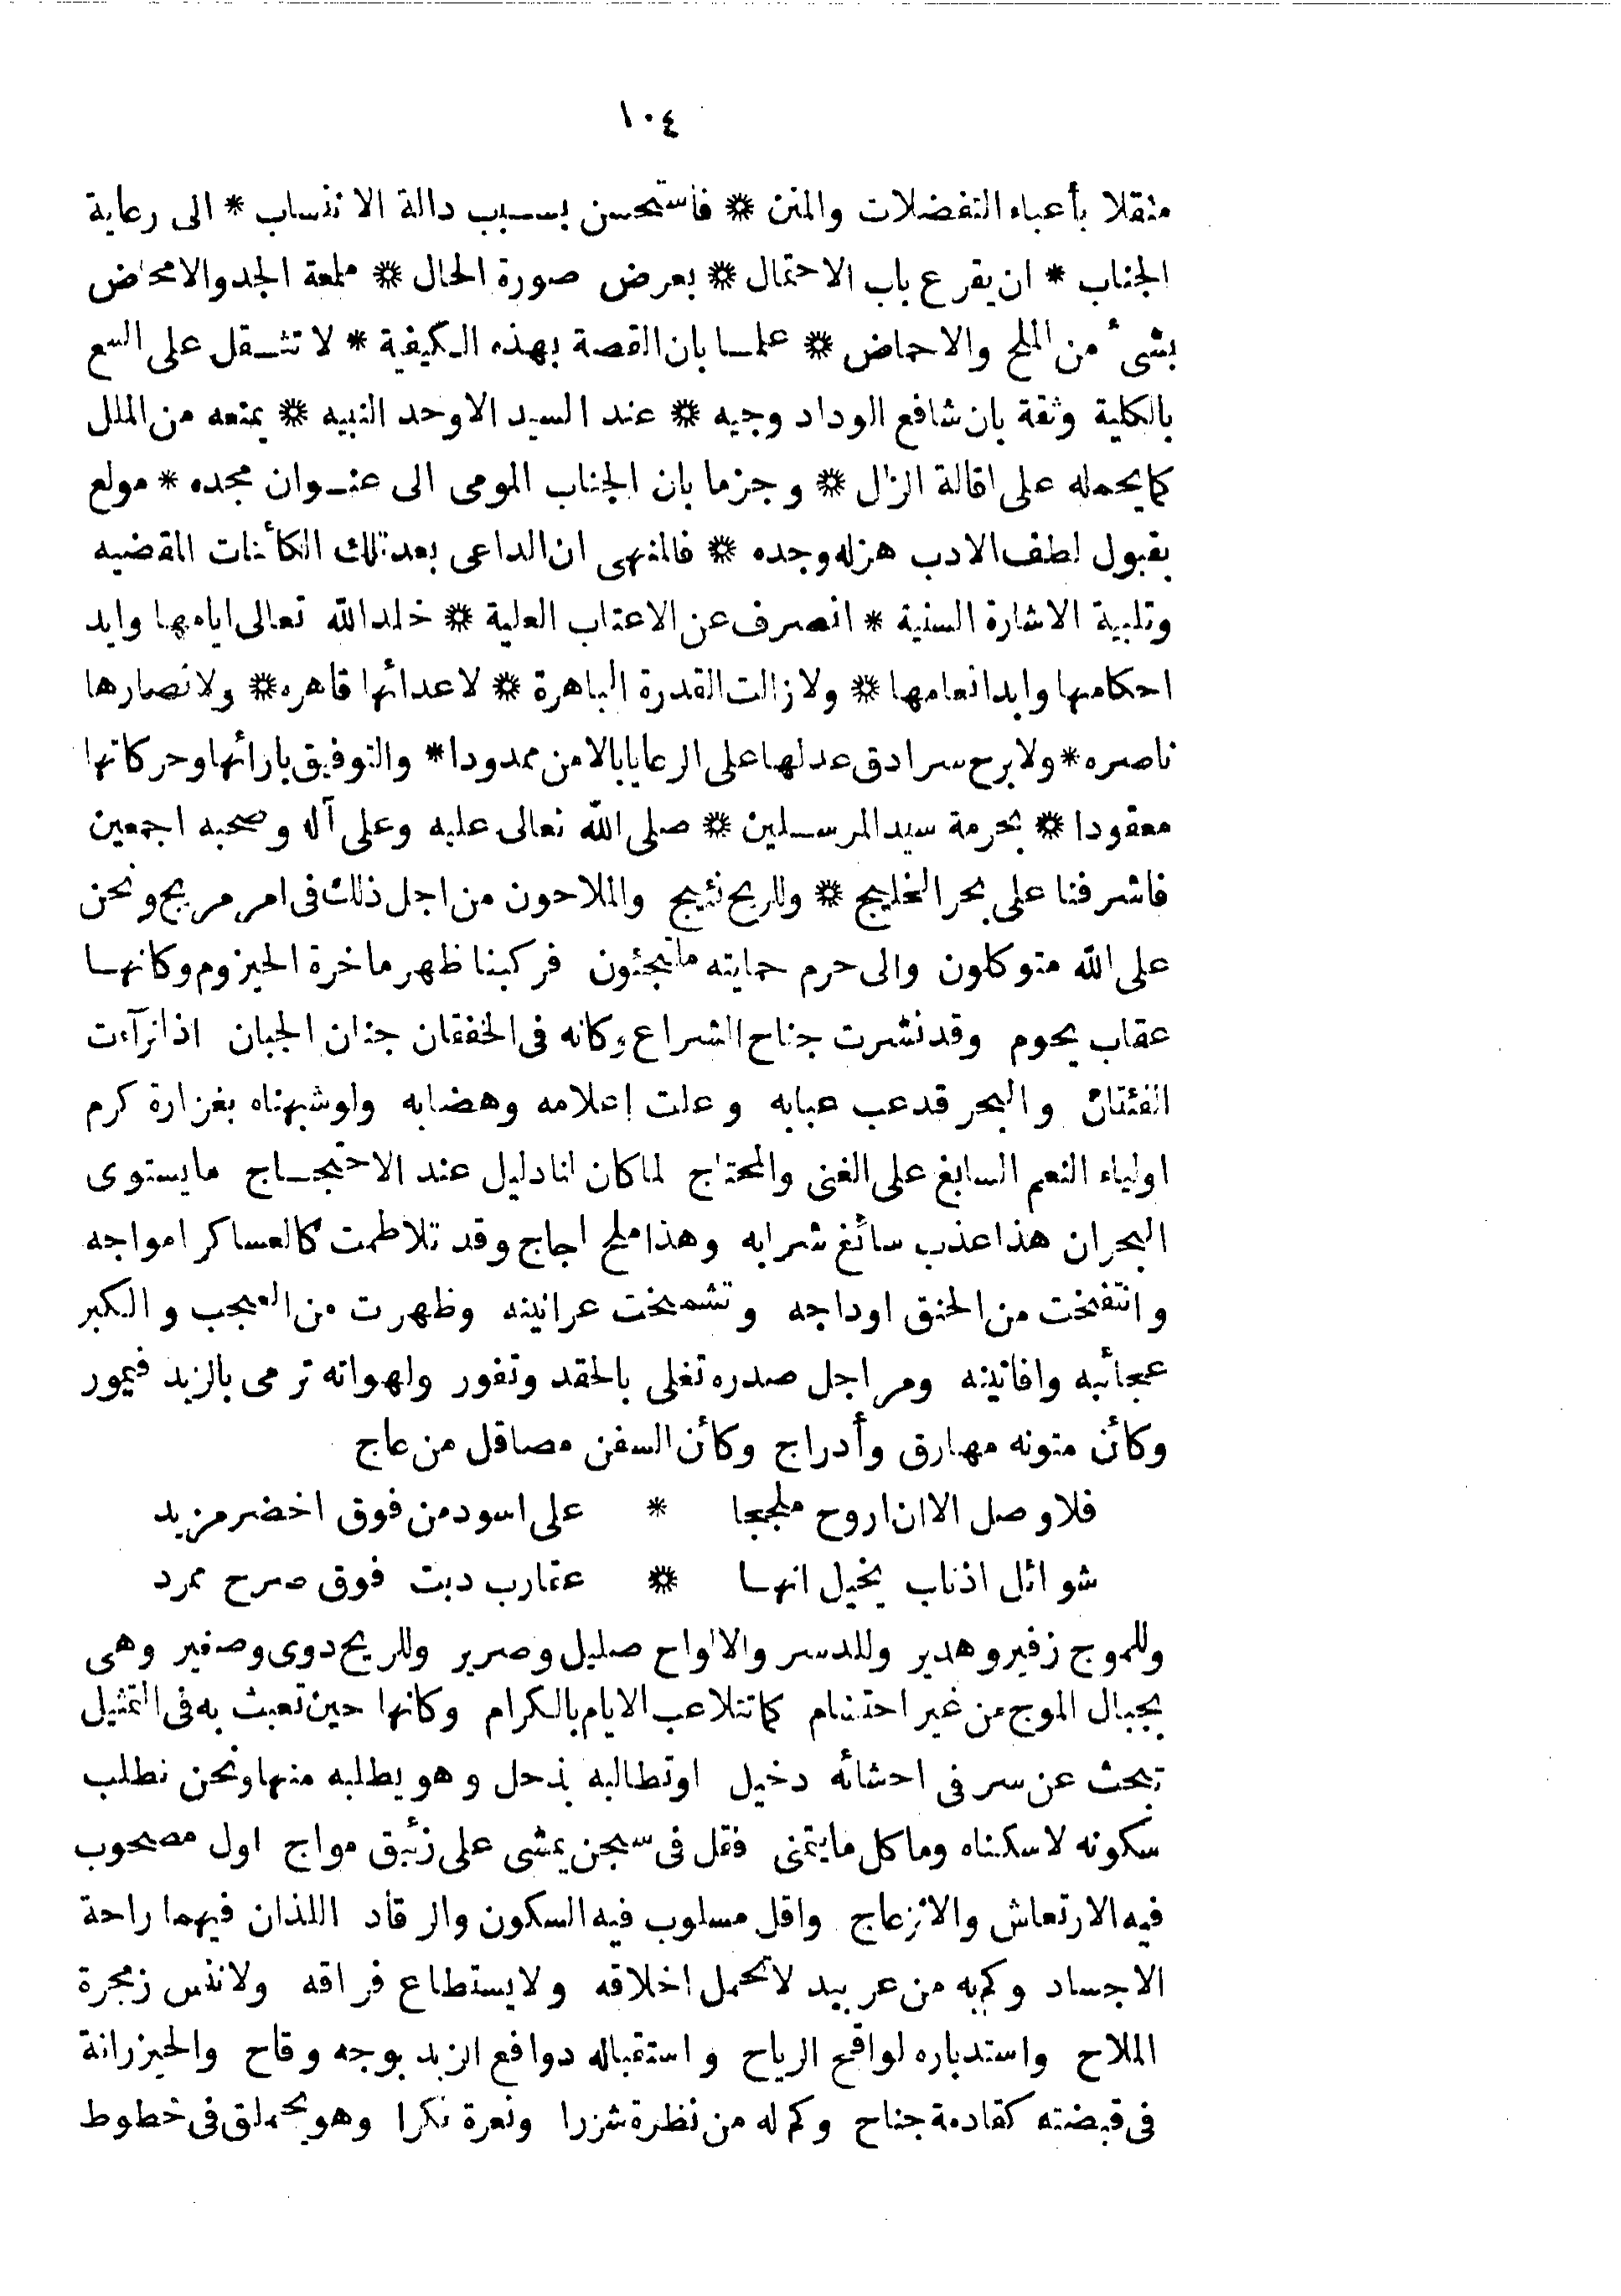 ١٠٤
مثقلا بأعباء التفضلات والمنن * فاستحسن بسبب دالة الانتساب * الى رعاية
الجناب * ان يقرع باب الاحتمال * بعرض صورة الحال * ملمعة الجد والامحاض
بشئ من الملح والاحماض * علما بان القصة بهذه الكيفية * لا تثقل على السمع
بالكلية وثقة بان شافع الوداد وجيه * عند السيد الاوحد النبيه * يمنعه من الملل
كما يحمله على اقالة الزلل * وجزما بان الجناب المومى الى عنوان مجده * مولع
بقبول لطف الادب هزله وجده * فالمنهى ان الداعى بعد تلك الكائنات المقضيه
وتلبية الاشارة السنية * انصرف عن الاعتاب العلية * خلد الله تعالى ايامها وايد
احكامها وابد انعامها * ولا زالت القدرة الباهرة * لاعدائها قاهره * ولانصارها
ناصره * ولا برح سرادق عدلها على الرعايا بالامن ممدودا * والتوفيق بارائها وحركاتها
معقودا * بحرمة سيد المرسلين * صلى الله تعالى عليه وعلى آله وصحبه اجمعين
فاشرفنا على بحر الخليج * وللريح نئيج والملاحون من اجل ذلك فى امر مريج ونحن
على الله متوكلون والى حرم حمايته ملتجئون فركبنا ظهر ماخرة الحيزوم وكانها
عقاب يحوم وقد نشرت جناح الشراع وكانه فى الخفقان جنان الجبان اذا تراءت
الفئتان والبحر قد عب عبابه وعلت اعلامه وهضابه ولو شبهناه بغزارة كرم
اولياء النعم السابغ على الغنى والمحتاج لما كان لنا دليل عند الاحتجاج ما يستوى
البحران هذا عذب سائغ شرابه وهذا ملح اجاج وقد تلاطمت كالعساكر امواجه
وانتفخت من الحنق اوداجه وتشمخت عرانينه وظهرت من العجب والكبر
عجائبه وافانينه ومراجل صدره تغلى بالحقد وتفور ولهواته ترمى بالزبد فيمور
وكأن متونه مهارق وأدراج وكأن السفن مصاقل من عاج
فلا وصل الا ان اروح ملججا * على اسود من فوق اخضر مزبد
شوائل اذناب يخيل انها * عقارب دبت فوق صرح ممرد
وللموج زفير وهدير وللدسر والالواح صليل وصرير وللريح دوى وصفير وهى
بجبال الموج من غير احتشام كما تتلاعب الايام بالكرام وكانها حين تعبث به فى التمثيل
تبحث عن سر فى احشائه دخيل او تطالبه بذحل وهو يطلبه منها ونحن نطلب
سكونه لا سكناه وما كل ما يتمنى فقل فى سجن يمشى على زئبق مواج اول مصحوب
فيه الارتعاش والانزعاج واقل مسلوب فيه السكون والرقاد اللذان فيهما راحة
الاجساد وكم به من عربيد لا تحمل اخلاقه ولا يستطاع فراقه ولا تنس زمجرة
الملاح واستدباره لواقح الرياح واستقباله دوافع الزبد بوجه وقاح والخيزرانة
فى قبضته كقادمة جناح وكم له من نظرة شزرا ونعرة نكرا وهو يحملق فى خطوط